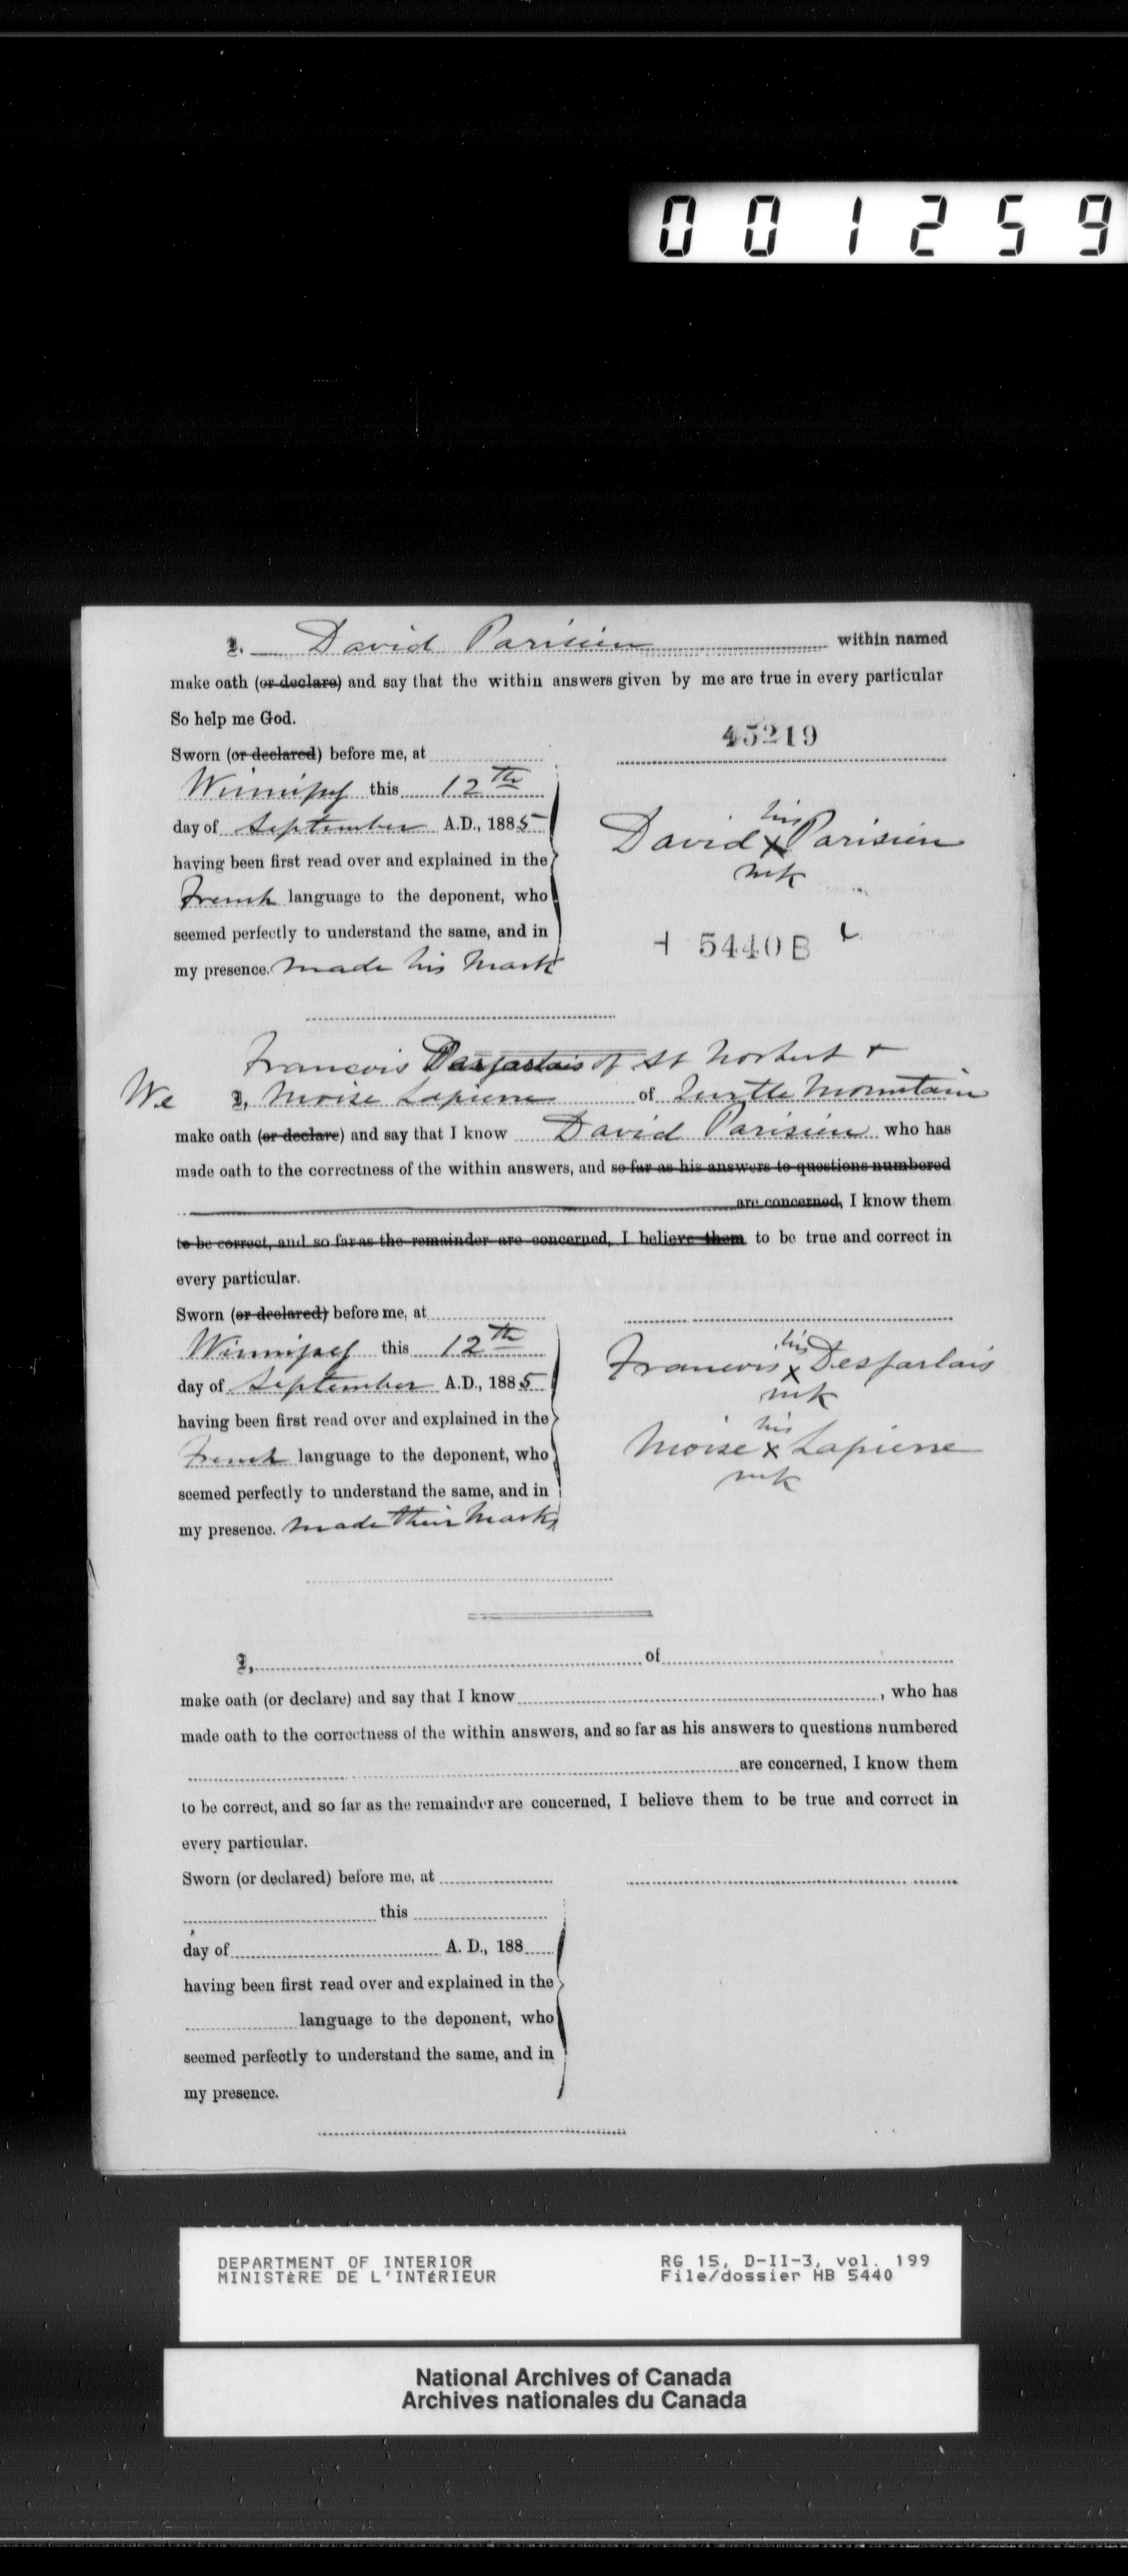 001259
I, David Parisien within named
make oath (or declare) and say that the within answers given by me are true in every particular
So help me God.
45219
Sworn (or declared) before me, at
Winnipeg this 12th
day of September A.D., 1885
his
David X Parisien
mk
having been first read over and explained in the
French language to the deponent, who
seemed perfectly to understand the same, and in
5440 B
my presence. made his mark
Francois Desjarlais of St Norbert +
We I, Moise Lapierre of Turtle Mountain
make oath (or declare) and say that I know David Parisien who has
made oath to the correctness of the within answers, and so far as his answers to questions numbered
are concerned, I know them
to be correct, and so far as the remainder are concerned, I believe them to be true and correct in
every particular.
Sworn (or declared) before me, at
Winnipeg this 12th
day of September A.D., 1885
his
Francois x Desjarlais
mk
having been first read over and explained in the
French language to the deponent, who
his
Moise x Lapierre
mk
seemed perfectly to understand the same, and in
my presence. made their marks
I, of
make oath (or declare) and say that I know , who has
made oath to the correctness of the within answers, and so far as his answers to questions numbered
are concerned, I know them
to be correct, and so far as the remainder are concerned, I believe them to be true and correct in
every particular.
Sworn (or declared) before me, at
this
day of A. D., 188
having been first read over and explained in the
language to the deponent, who
seemed perfectly to understand the same, and in
my presence.
DEPARTMENT OF INTERIOR
MINISTÈRE DE L'INTÉRIEUR
RG 15, D-II-3, vol. 199
File/dossier HB 5440
National Archives of Canada
Archives nationales du Canada